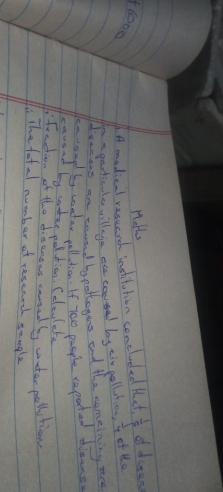 Maths
1. A medical research institution concluded that 1/5 of diseases
in a particular village are caused by air pollution, 1/4 of the
diseases are caused by pathogens and the remaining are
caused by water pollution. If 700 people reported diseases
caused by water pollution. Calculate
i. Fraction of the diseases caused by water pollution
ii. The total number of research sample